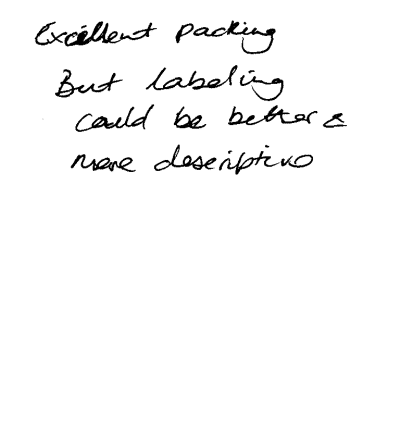 Excellent packing
But labeling
could be better &
more descriptive